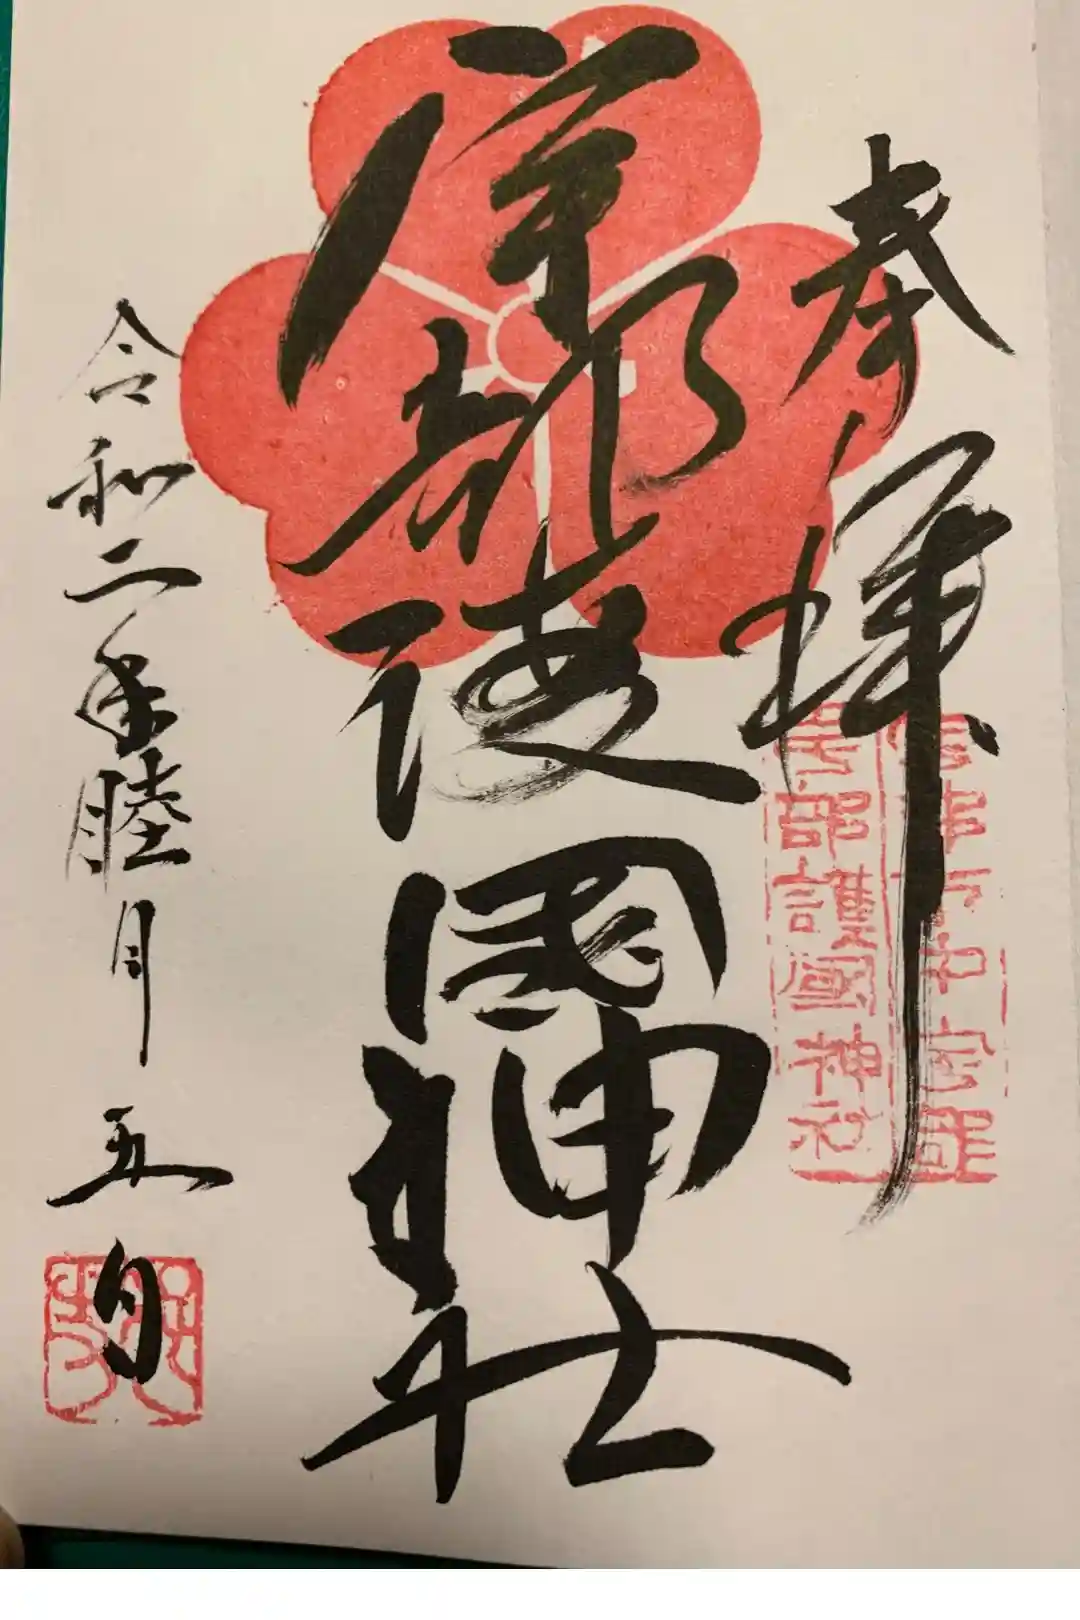 奉拝
宇部市中宇部
宇部護國神社
宇部護國神社
令和二年睦月五日